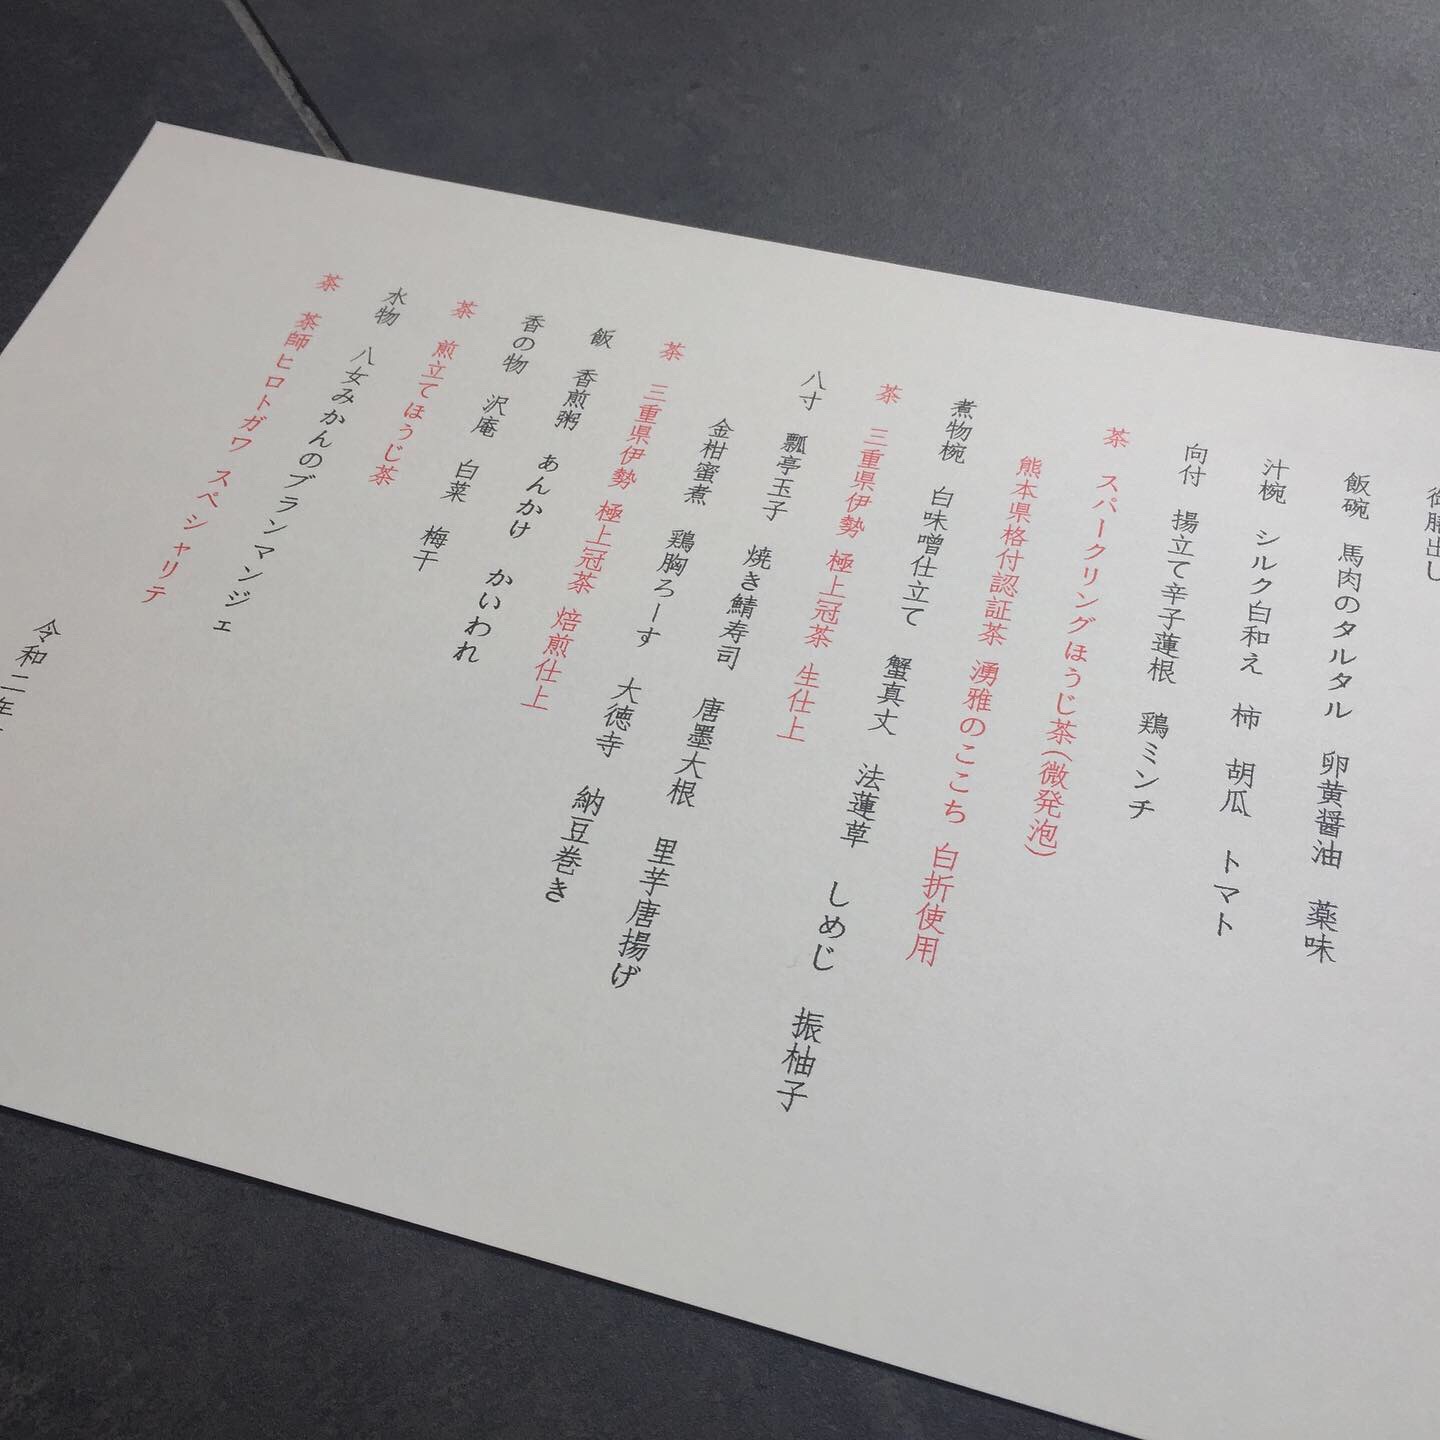 御膳出し
飯碗　馬肉のタルタル　卵黄醤油　薬味
汁椀　シルク白和え　柿　胡瓜　トマト
向付　揚立て辛子蓮根　鶏ミンチ
茶　スパークリングほうじ茶(微発泡)
熊本県格付認証茶　湧雅のここち　白折使用
煮物椀　白味噌仕立て　蟹真丈　法蓮草　しめじ　振柚子
茶　三重県伊勢　極上冠茶　生仕上
八寸　瓢亭玉子　焼き鯖寿司　唐墨大根　里芋唐揚げ
金柑蜜煮　鶏胸ろーす　大徳寺　納豆巻き
茶　三重県伊勢　極上冠茶　焙煎仕上
飯　香煎粥　あんかけ　かいわれ
香の物　沢庵　白菜　梅干
茶　煎立てほうじ茶
水物　八女みかんのブランマンジェ
茶　茶師ヒロトガワ　スペシャリテ
令和二年